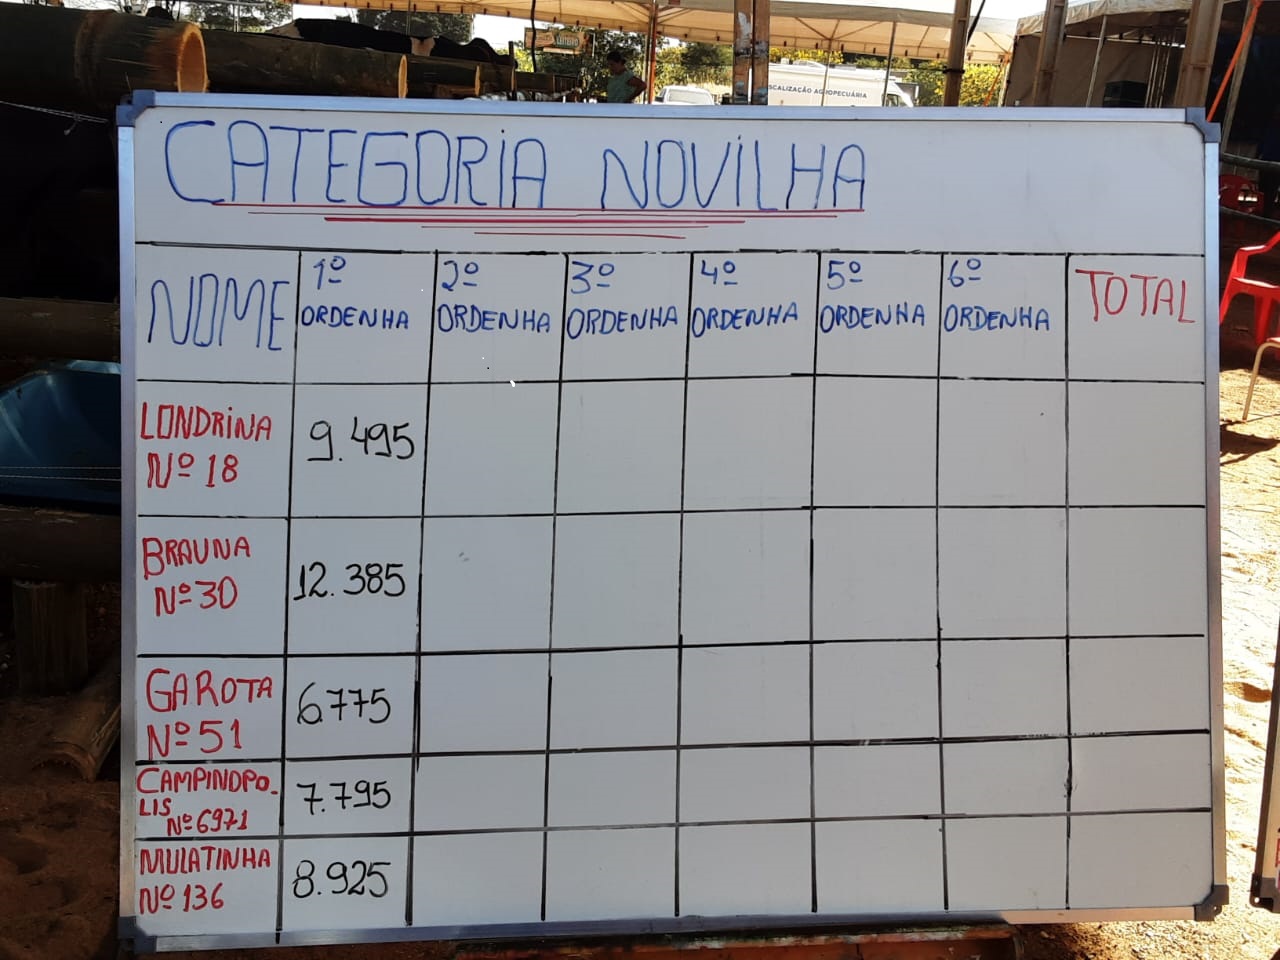 LEITEIRO
SCALIZAÇÃO AGROPECUÁRIA
CATEGORIA NOVILHA
NOME 1º ORDENHA 2º ORDENHA 3º ORDENHA 4º ORDENHA 5º ORDENHA 6º ORDENHA TOTAL
LONDRINA Nº 18 9.495
BRAUNA Nº 30 12.385
GAROTA Nº 51 6.775
CAMPINOPO-
LIS Nº 6971 7.795
MULATINHA Nº 136 8.925